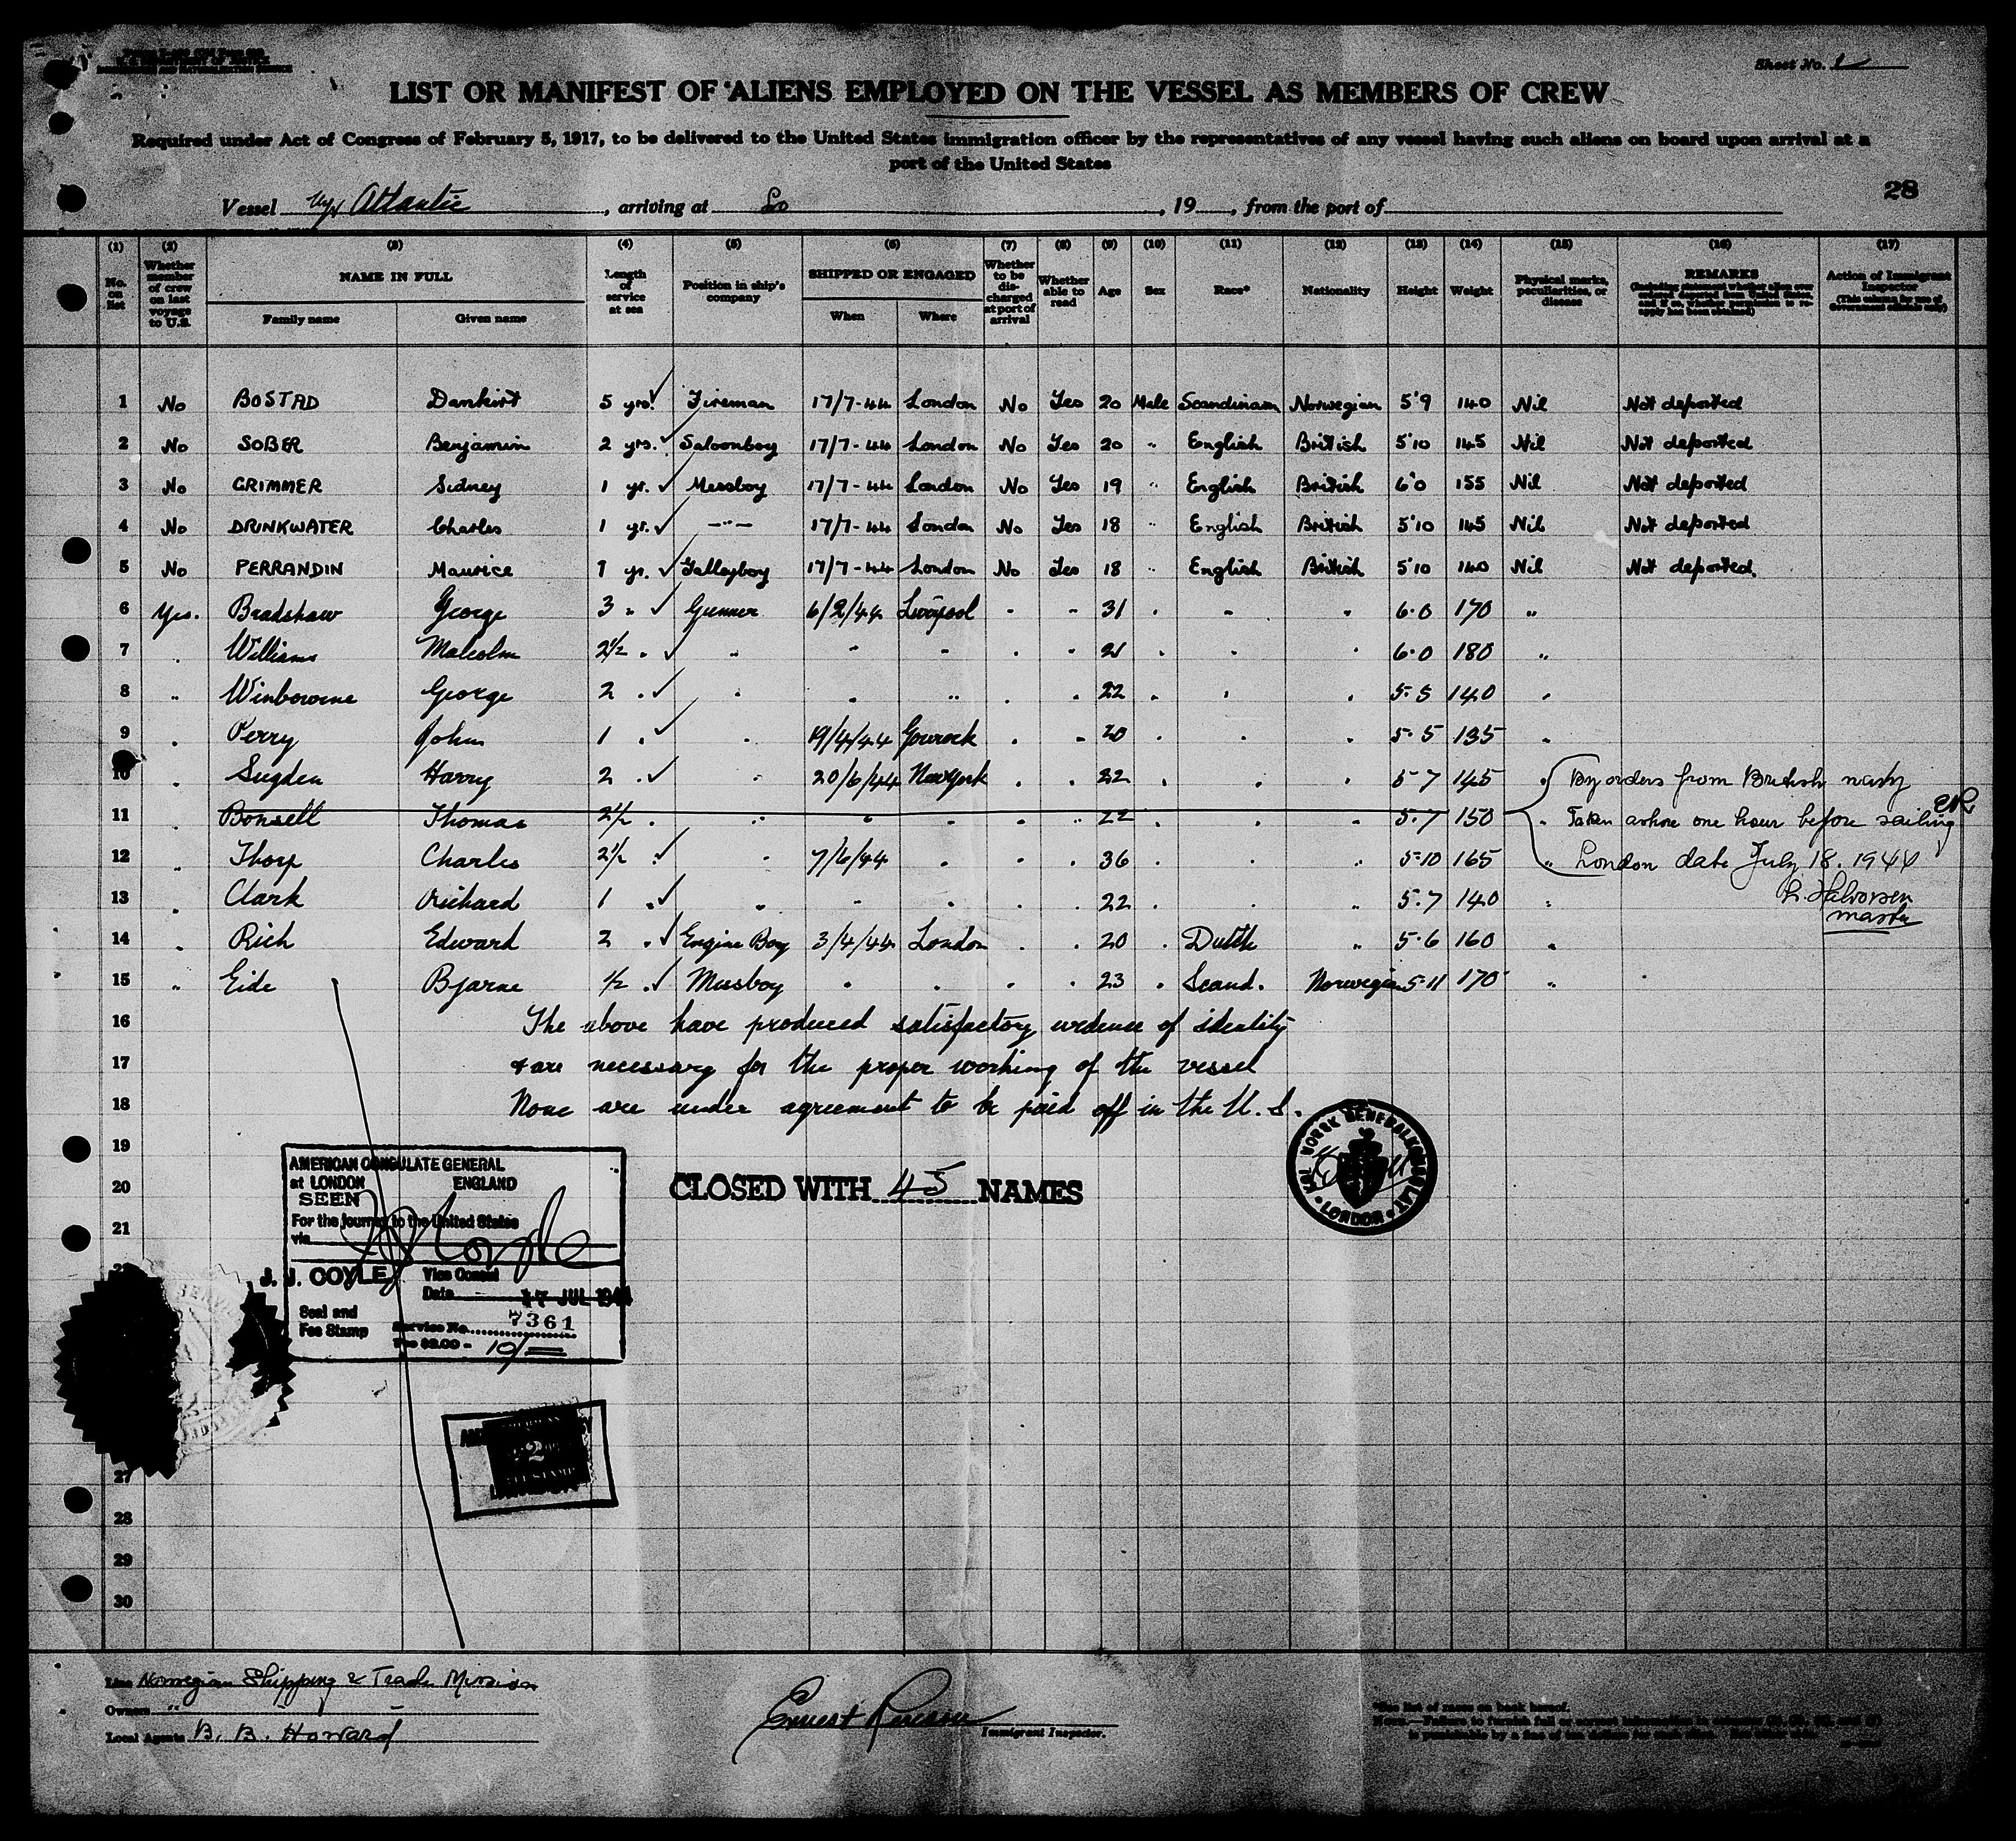 Sheet No.
LIST OR MANIFEST OF ALIENS EMPLOYED ON THE VESSEL AS MEMBERS OF CREW
Required under Act of Congress of February 5, 1917, to be delivered to the United States immigration officer by the representatives of any vessel having such aliens on board upon arrival at a
port of the United States
28
Vessel Atlantic, arriving at , 19 , from the port of
(1) (2) (3) (4) (5) (6) (7) (8) (9) (10) (11) (12) (13) (14) (15) (16) (17)
No. on list
Whether member of crew on last voyage to U.S.
NAME IN FULL
Family name Given name
Length of service at sea
Position in ship's company
SHIPPED OR ENGAGED
When Where
Whether to be discharged at port of arrival
Whether able to read
Age
Sex
Race*
Nationality
Height
Weight
Physical marks, peculiarities, or disease
REMARKS
Action of Immigrant Inspector
(This column for use of Government officials only)
1 No BOSTAD Dankirt 5 yrs. Fireman 17/7-44 London No Yes 20 Male Scandinam Norwegian 5'9 140 Nil Not deported
2 No SOBER Benjamin 2 yrs. Saloonboy 17/7-44 London No Yes 20 " English British 5'10 145 Nil Not deported
3 No GRIMMER Sidney 1 yr. Messboy 17/7-44 London No Yes 19 " English British 6'0 155 Nil Not deported
4 No DRINKWATER Charles 1 yr. —"— 17/7-44 London No Yes 18 " English British 5'10 145 Nil Not deported
5 No PERRANDIN Maurice 1 yr. Galleyboy 17/7-44 London No Yes 18 " English British 5'10 140 Nil Not deported.
6 Yes. Bradshaw George 3 " Gunner 6/2/44 Liverpool " " 31 " " " 6.0 170 "
7 " Williams Malcolm 2½ " " " " " " 21 " " " 6.0 180 "
8 " Winbourne George 2 " " " " " " 22 " " " 5.5 140 "
9 " Perry John 1 " " 19/4/44 Gourock " " 20 " " " 5.5 135 "
10 " Sugden Harry 2 " " 20/6/44 New York " " 22 " " " 5.7 145 " By orders from British navy
11 " Bonsell Thomas 2½ " " " " " " 22 " " " 5.7 150 " Taken ashore one hour before sailing
12 " Thorp Charles 2½ " " 7/6/44 " " " 36 " " " 5.10 165 " London date July 18. 1944
13 " Clark Richard 1 " " " " " " 22 " " " 5.7 140 " Halvorsen
master
14 " Rich Edward 2 " Engine Boy 3/4/44 London " " 20 " Dutch " 5.6 160 "
15 " Eide Bjarne ½ " Messboy " " " " 23 " Scand. Norwegian 5.11 170 "
16 The above have produced satisfactory evidence of identity
17 & are necessary for the proper working of the vessel
18 None are under agreement to be paid off in the U.S.
19
20
21
27
28
29
30
AMERICAN CONSULATE GENERAL
at LONDON ENGLAND
SEEN
For the journey to the United States
via
J. J. COYLE Vice Consul
Date 17 JUL 1944
Seal and Fee Stamp
Service No. 7361
Fee $2.00 = 10/=
CLOSED WITH 45 NAMES
KGL NORSK GENERALKONSULAT
LONDON
2
Line Norwegian Shipping & Trade Mission
Owners "
Local Agents B. B. Howard
Ernest
Immigrant Inspector.